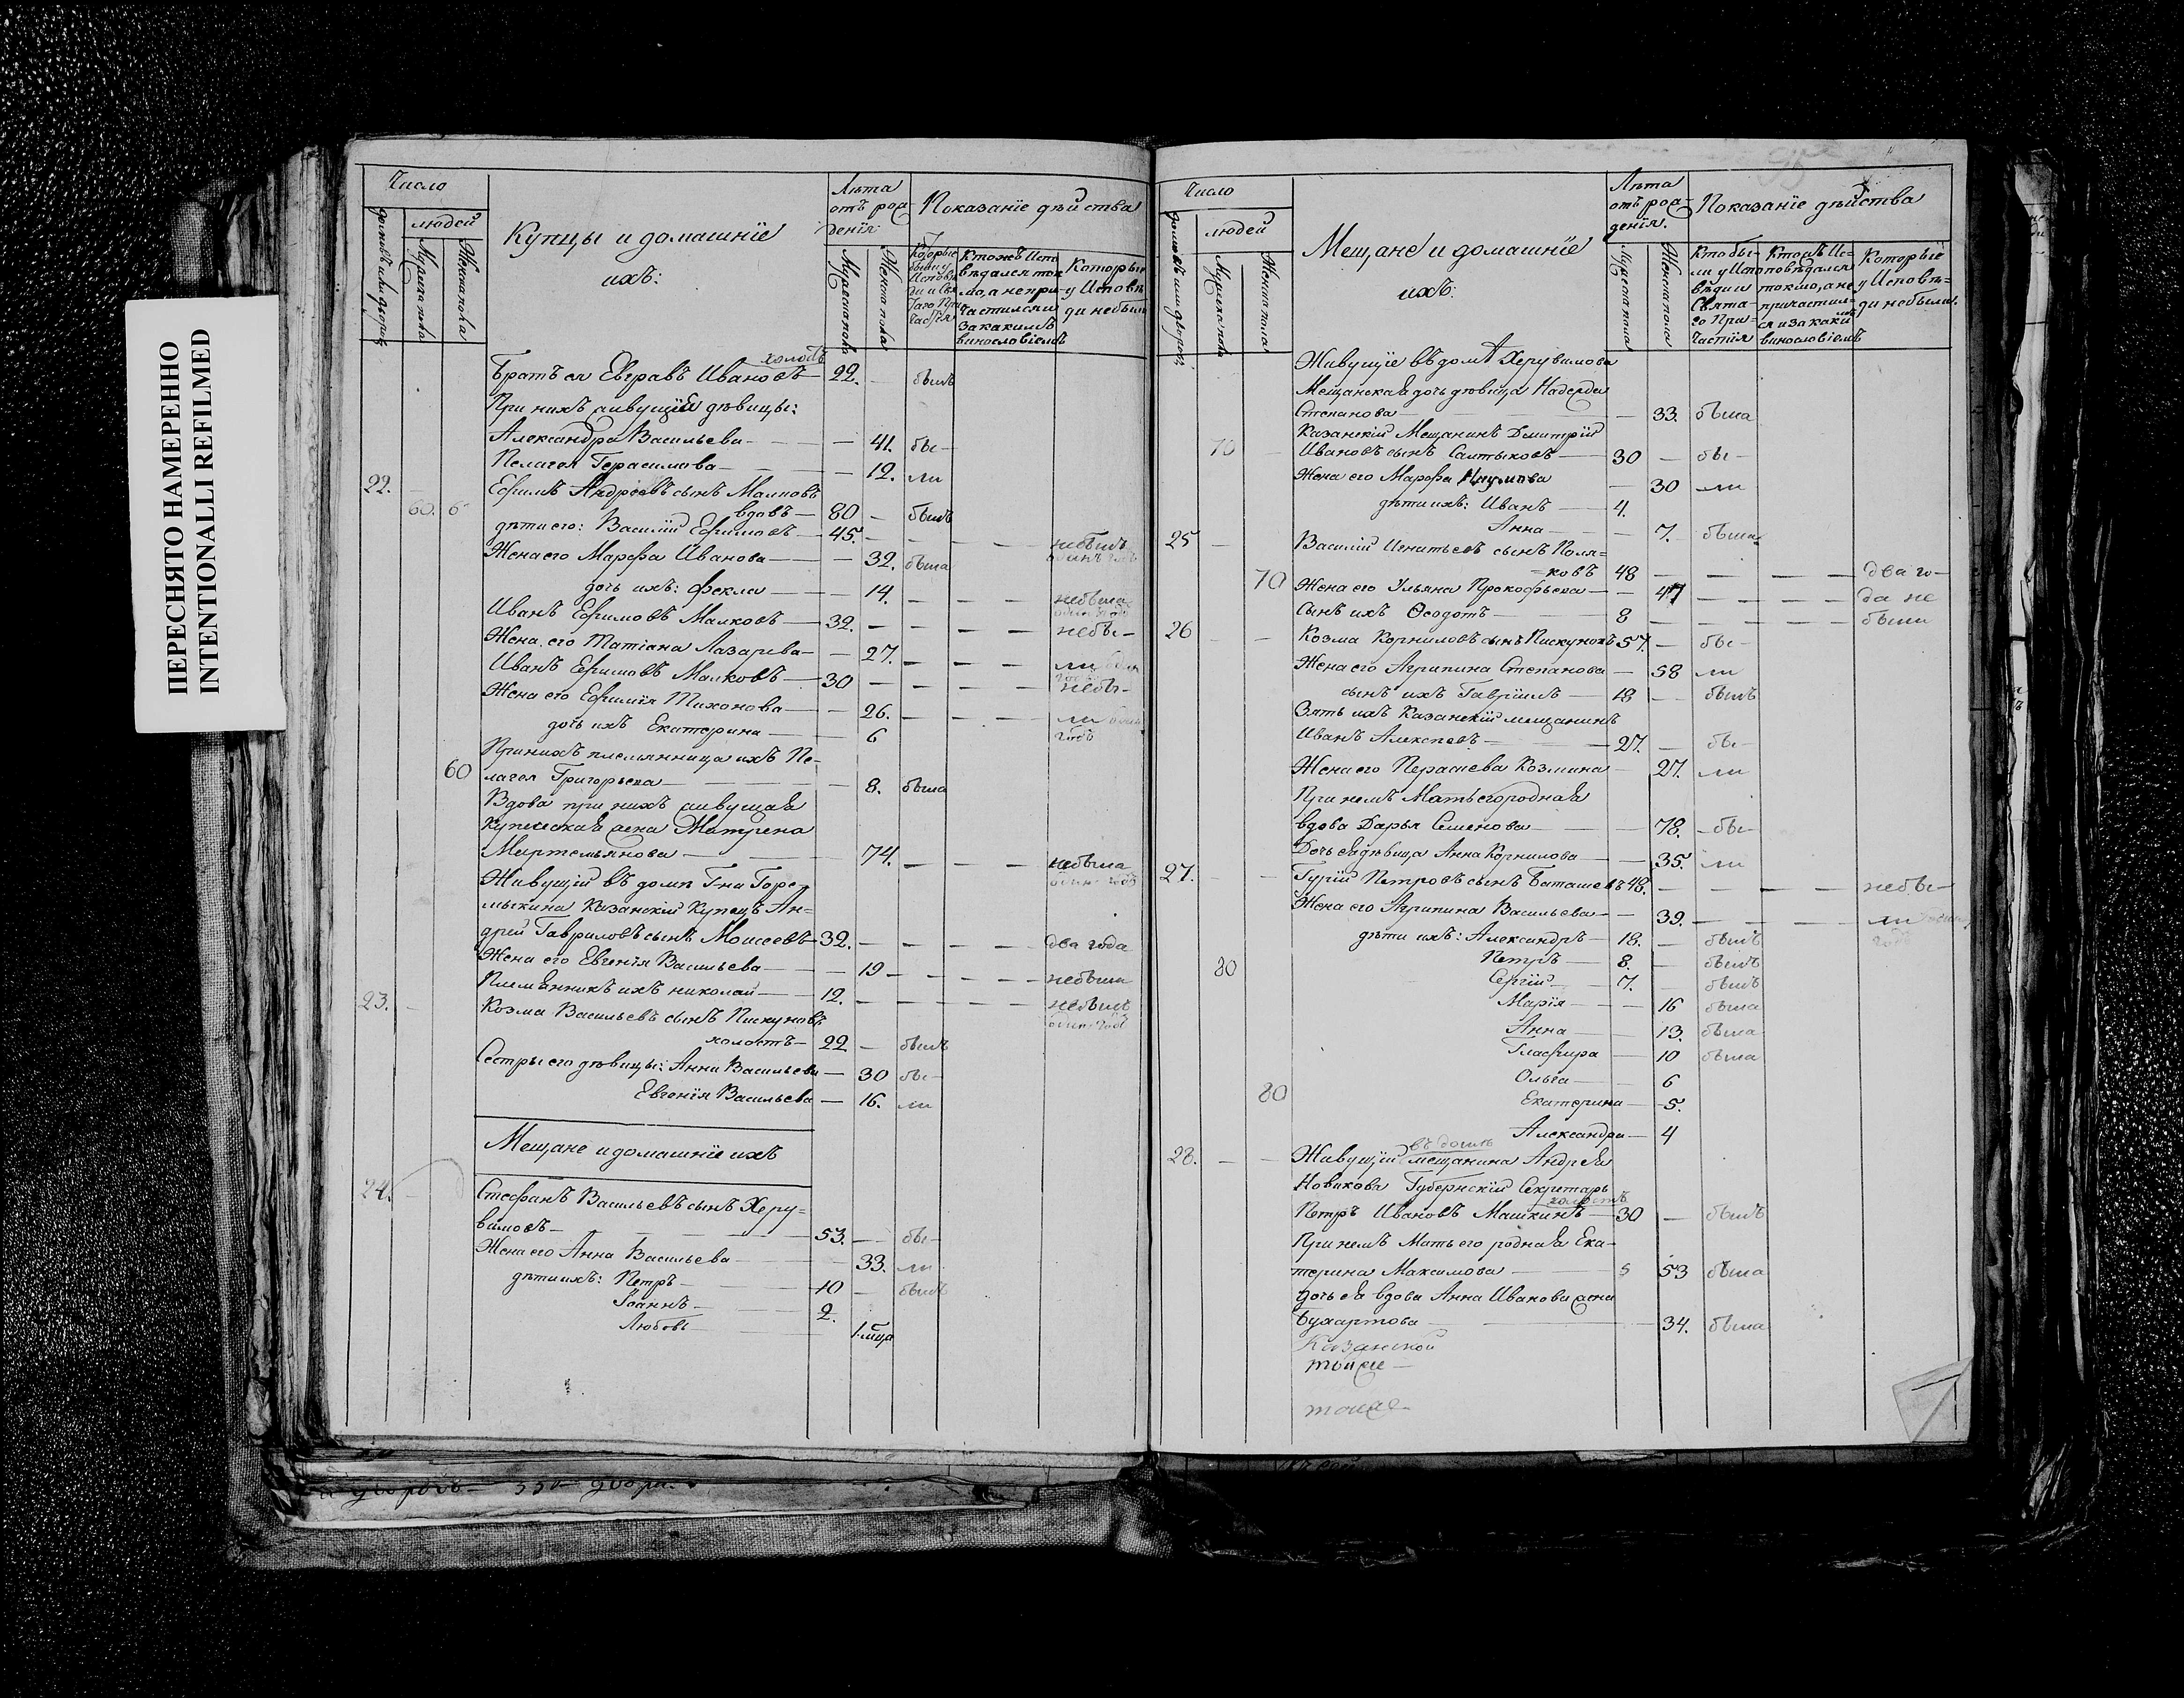 ПЕРЕСНЯТО НАМЕРЕННО
INTENTIONALLI REFILMED
Число
людей
домовъ или дворовъ
Мужеска пола
Женска пола
Купцы и домашнїе
ихъ:
Лѣта
отъ рож-
денїя:
Мужеска пола
Женска пола
Показанїе дѣйства
Которые
были у
Исповѣ
ди и Свя
таго При
частїя
Ктожъ Испо
вѣдался ток
мо, а непри-
частился и
за какимъ
винословїемъ
Которые
у Исповѣ
ди небыли
холостъ
Братъ ея Евграфъ Ивановъ — 22. — былъ
При нихъ живущїя дѣвицы:
Александра Васильева — — 41. бы-
Пелагея Герасимова — — 12. ли
22. Ефимъ Андреевъ сынъ Малковъ
60. вдовъ — 80 — былъ
дѣти его: Василий Ефимовъ — 45. — — — небылъ
одинъ годъ
Жена его Марфа Иванова — — 32. была
дочь ихъ: Фекла — 14. — — небыла
одинъ годъ
Иванъ Ефимовъ Малковъ — 32. — — — небы-
Жена его Татїана Лазарева — — 27. — — — ли один
годъ
Иванъ Ефимовъ Малковъ — 30 — — — небы-
Жена его Ефимїя Тихонова — — 26. — — — ли один
дочь ихъ Екатерина — 6 годъ
При нихъ племянница ихъ Пе-
60 лагея Григорьева — — 8. была
Вдова при нихъ живущая
купеческая жена Матрена
Мартемьянова — 74. — — — небыла
один годъ
Живущїй въ домѣ Г-на Горе-
мыкина Казанскїй Купецъ Ан=
дрей Гавриловъ сынъ Моисеевъ 32. — — — два года
Жена его Евгенїя Васильева — — 19 — — — небыла
Племянникъ ихъ николай — 12. — — — небылъ
один годъ
23. Козма Васильевъ сынъ Пискуновъ
холостъ — 22 — былъ
Сестры его дѣвицы: Анна Васильева — 30 бы-
Евгенїя Васильева — 16. ли
Мещане и домашнїе ихъ
24. Стефанъ Васильевъ сынъ Херу=
вимовъ — 53. — бы-
Жена его Анна Васильева — 33. ли
дѣти ихъ: Петръ — 10 — былъ
Іоаннъ — 2.
Любовь — 1. мца
Число
людей
домовъ или дворовъ
Мужеска пола
Женска пола
Мещане и домашнїе
ихъ:
Лѣта
отъ рож-
денїя.
Мужеска пола
Женска пола
Показанїе дѣйства
Кто бы-
ли у Испо
вѣди и
Свята-
го При-
частїя
Ктожъ Ис-
повѣдался
токмо, а не
причастил-
ся и за каки
мъ
винословїемъ
Которые
у Исповѣ=
ди небыли.
Живущїе въ домѣ Херувимова
Мещанская дочь дѣвица Надежда
Степанова — — 33. была
Казанскїй Мещанинъ Димитрїй
70 Ивановъ сынъ Салтыковъ — 30 — бы-
Жена его Марфа Наумова — 30 ли
дѣти ихъ: Иванъ — 4.
Анна — — 7. была
25 Василий Игнатьевъ сынъ Поля=
=ковъ 48 — — — — два го-
70 Жена его Ульяна Прокофьева — — 47 — — — да не
Сынъ ихъ Ѳеодотъ — 8 — — — — были
26 Козма Корниловъ сынъ Пискуновъ 57. — бы-
Жена его Агрипина Степанова — — 58 ли
сынъ ихъ Гаврїилъ — 18 — былъ
Зять ихъ Казанскїй мещанинъ
Иванъ Алексеевъ — — 27. — бы-
Жена его Парасцева Козмина — 27. ли
При немъ Мать его родная
вдова Дарья Семенова — — 78. бы-
Дочь ея дѣвица Анна Корнилова — — 35. ли
27. Гурїй Петровъ сынъ Баташевъ 48. — — — — небы-
Жена его Агрипина Васильева — — 39. — — — ли один
годъ
дѣти ихъ: Александръ — 18. — былъ
80 Петръ — 8. — былъ
Сергїй — 7. — былъ
Марїя — — 16 была
Анна — 13. была
Глафира — 10 была
Ольга — 6
80 Екатерина — 5.
Александра — 4
въ домѣ
28. — — Живущїй мещанина Андрея
Новикова Губернскїй Секретарь
холостъ
Петръ Ивановъ Машкинъ — 30 — былъ
При немъ Мать его родная Ека-
терина Максимова — 53 была
Дочь ея вдова Анна Иванова жена
Бухартова — 34. была
Казанской
тойже —
тожъ